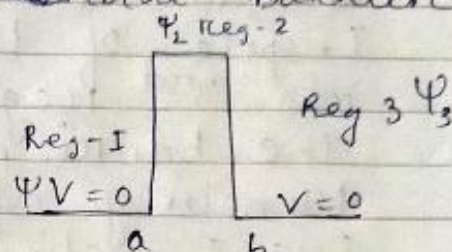 ψ₂ Reg-2
Reg 3 ψ₃
Reg-I
ψ V = 0
V = 0
a b